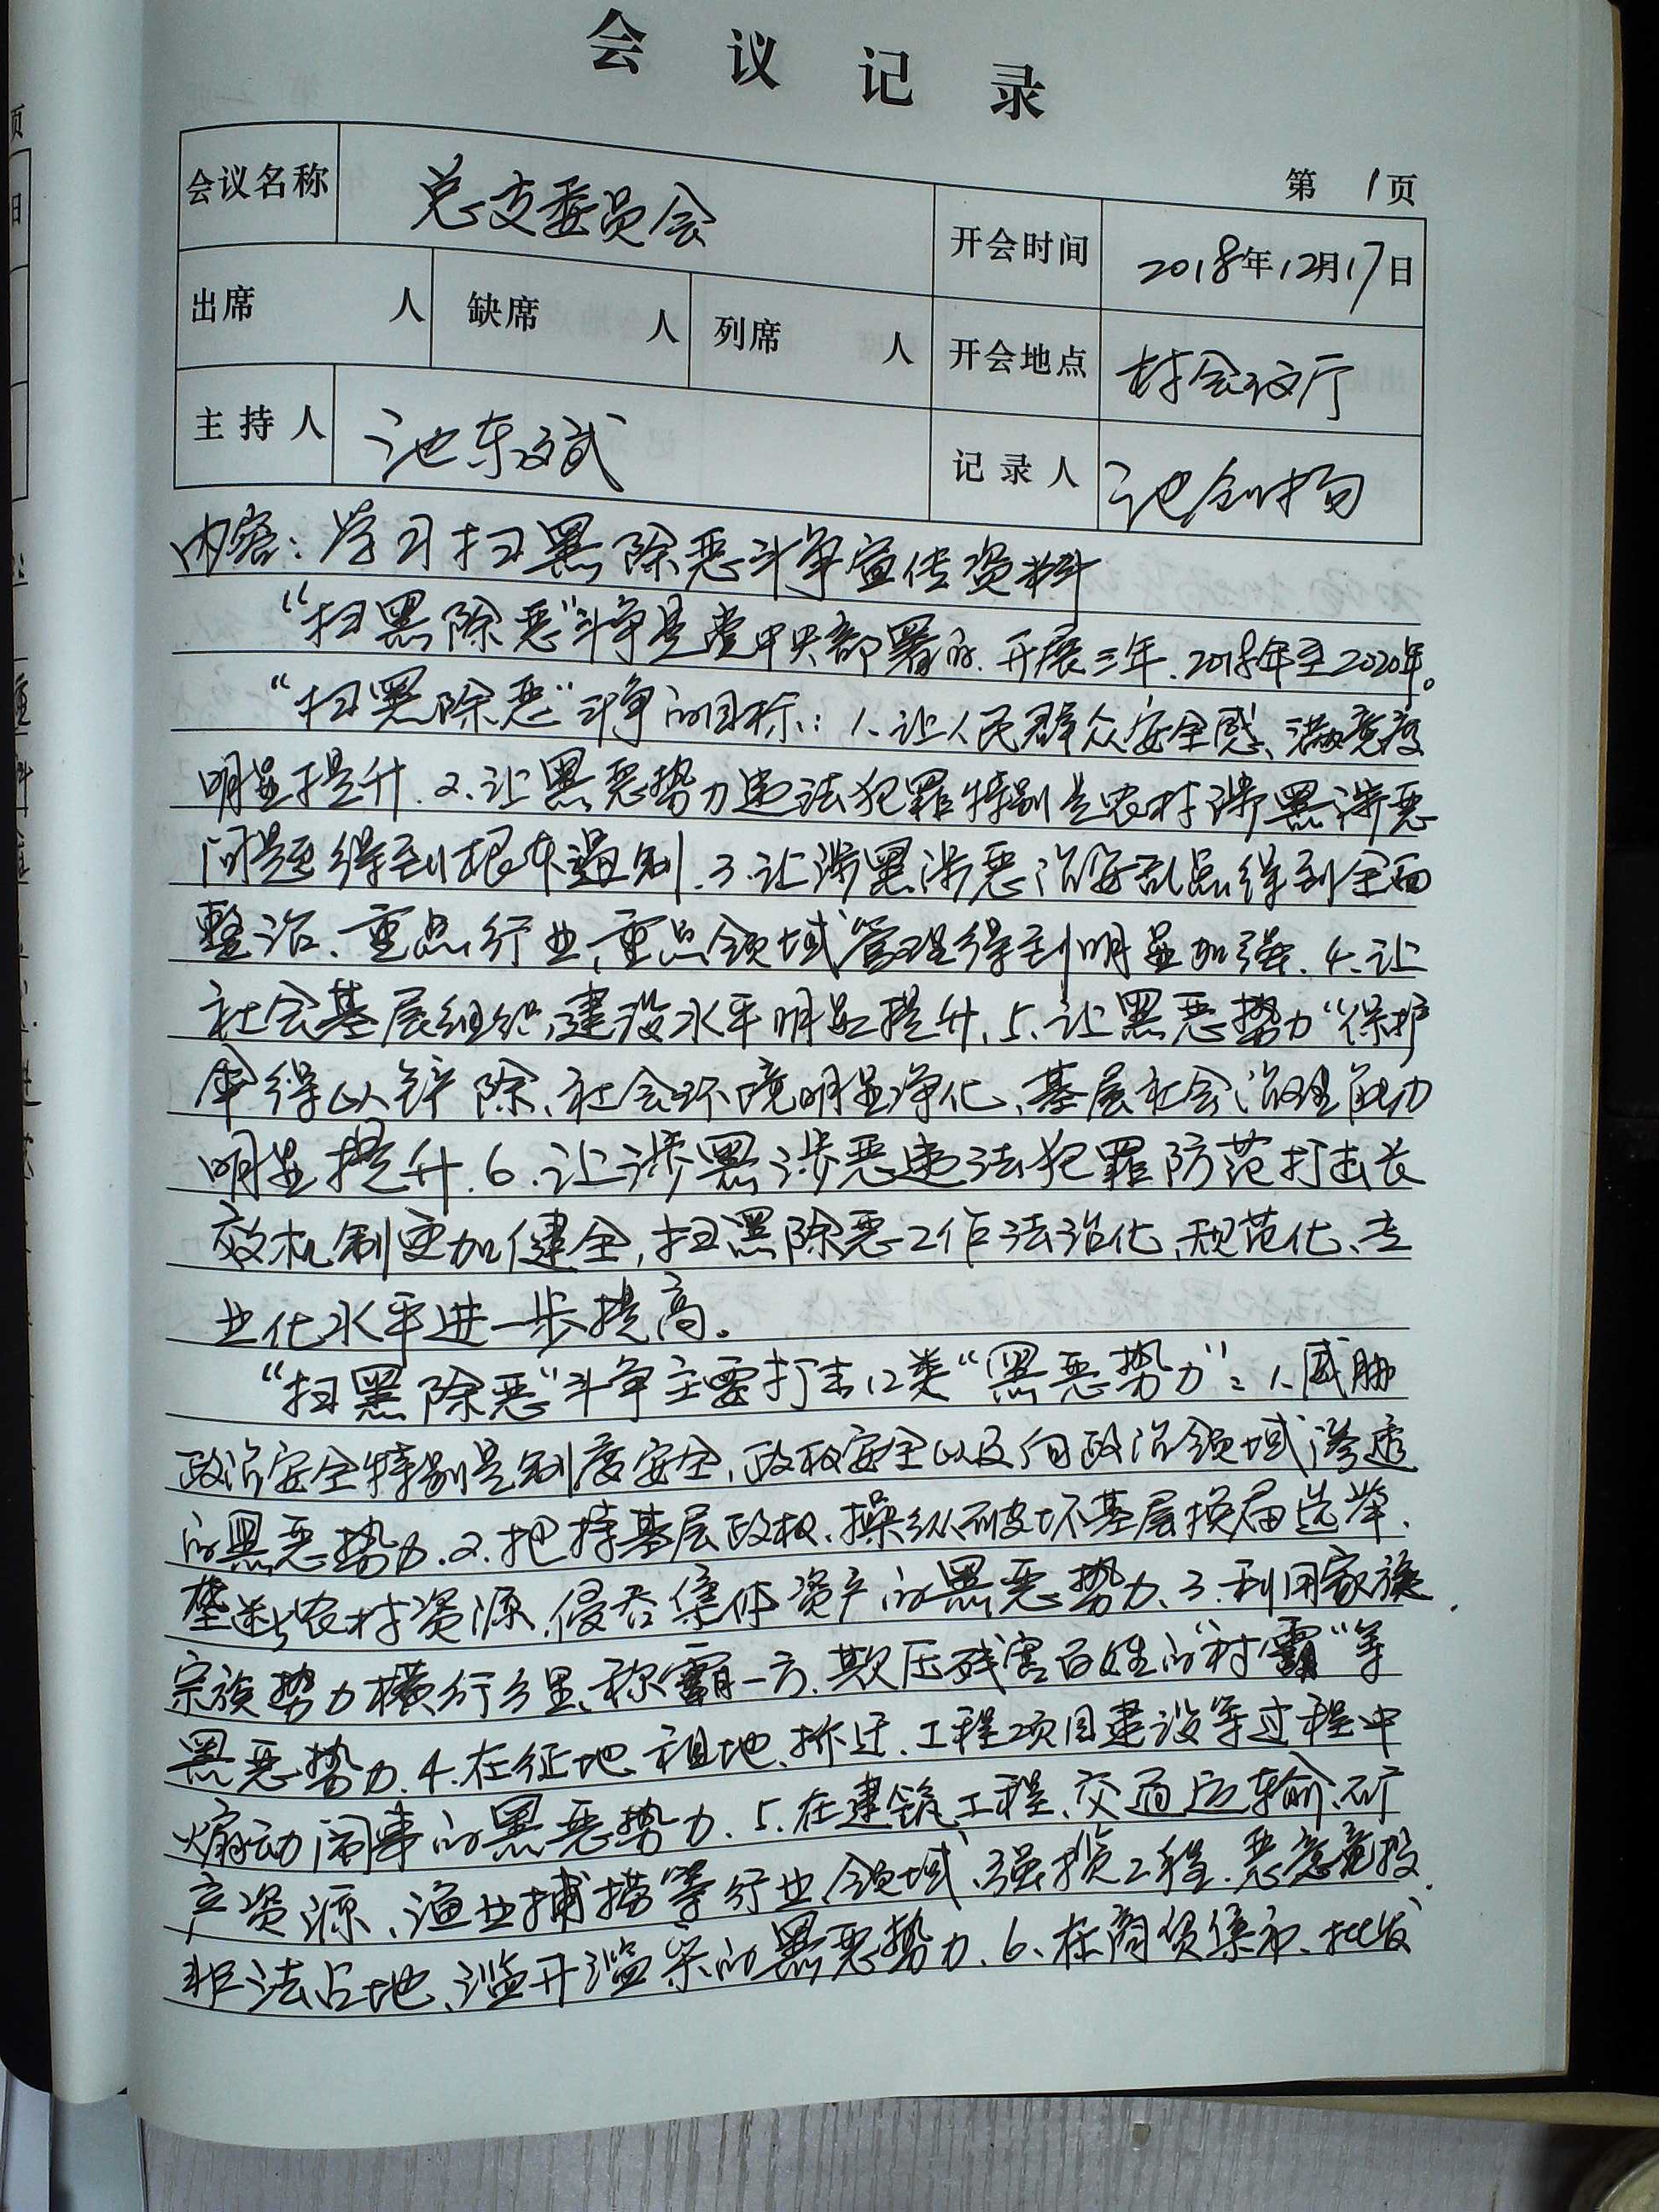 会议记录
第 1页
会议名称 总支委员会 开会时间 2018年12月17日
出席 人 缺席 人 列席 人 开会地点 村会议厅
主持人 池东斌 记录人
内容：学习扫黑除恶斗争宣传资料
“扫黑除恶”斗争是党中央部署的、开展三年、2018年至2020年。
“扫黑除恶”斗争的目标：1、让人民群众安全感、满意度
明显提升.2、让黑恶势力违法犯罪特别是农村涉黑涉恶
问题得到根本遏制.3、让涉黑涉恶治安乱点得到全面
整治、重点行业、重点领域管理得到明显加强.4、让
社会基层组织建设水平明显提升.5、让黑恶势力“保护
伞得以铲除、社会环境明显净化、基层社会治理能力
明显提升.6、让涉黑涉恶违法犯罪防范打击长
效机制更加健全，扫黑除恶工作法治化、规范化、专
业化水平进一步提高。
“扫黑除恶”斗争主要打击12类“黑恶势力”：1、威胁
政治安全特别是制度安全、政权安全以及向政治领域渗透
的黑恶势力.2、把持基层政权、操纵破坏基层换届选举、
垄断农村资源、侵吞集体资产的黑恶势力、3、利用家族、
宗族势力横行乡里、称霸一方、欺压残害百姓的“村霸”等
黑恶势力.4、在征地、租地、拆迁、工程项目建设等过程中
煽动闹事的黑恶势力、5、在建筑工程、交通运输、矿
产资源、渔业捕捞等行业、领域、强揽工程、恶意竞投、
非法占地、滥开滥采的黑恶势力、6、在商贸集市、批发